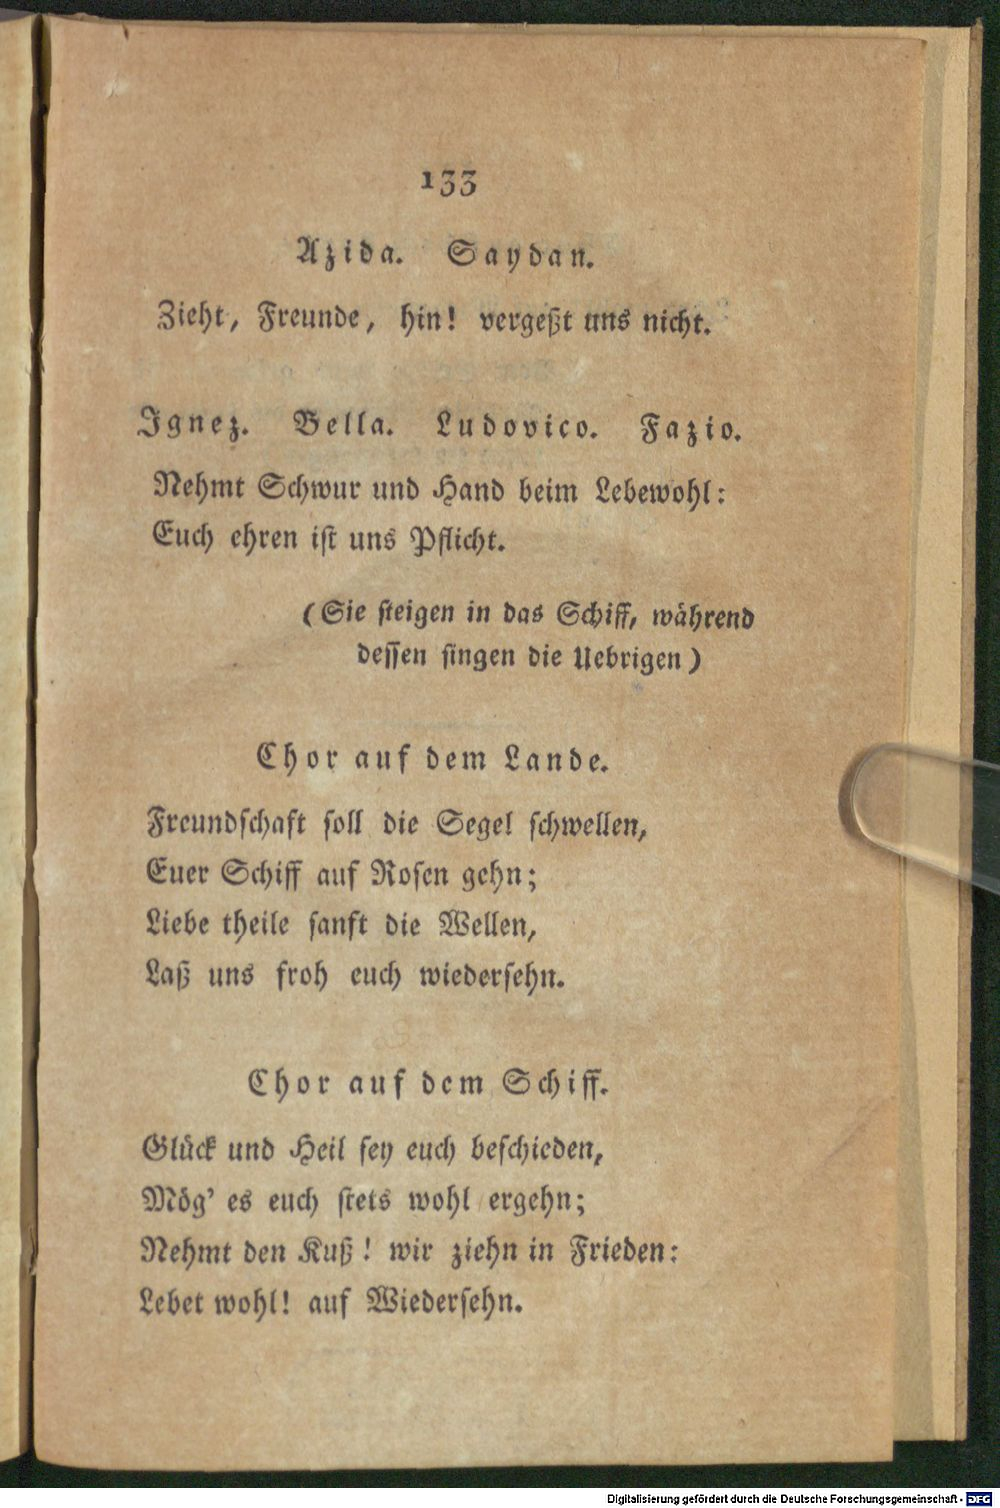 133
Azida. Saydan.
Zieht, Freunde, hin! vergeßt uns nicht.
Ignez. Bella. Ludovico. Fazio.
Nehmt Schwur und Hand beim Lebewohl:
Euch ehren ist uns Pflicht.
(Sie steigen in das Schiff, während
dessen singen die Uebrigen)
Chor auf dem Lande.
Freundschaft soll die Segel schwellen,
Euer Schiff auf Rosen gehn;
Liebe theile sanft die Wellen,
Laß uns froh euch wiedersehn.
Chor auf dem Schiff.
Glück und Heil sey euch beschieden,
Mög' es euch stets wohl ergehn;
Nehmt den Kuß! wir ziehn in Frieden:
Lebet wohl! auf Wiedersehn.
Digitalisierung gefördert durch die Deutsche Forschungsgemeinschaft - DFG